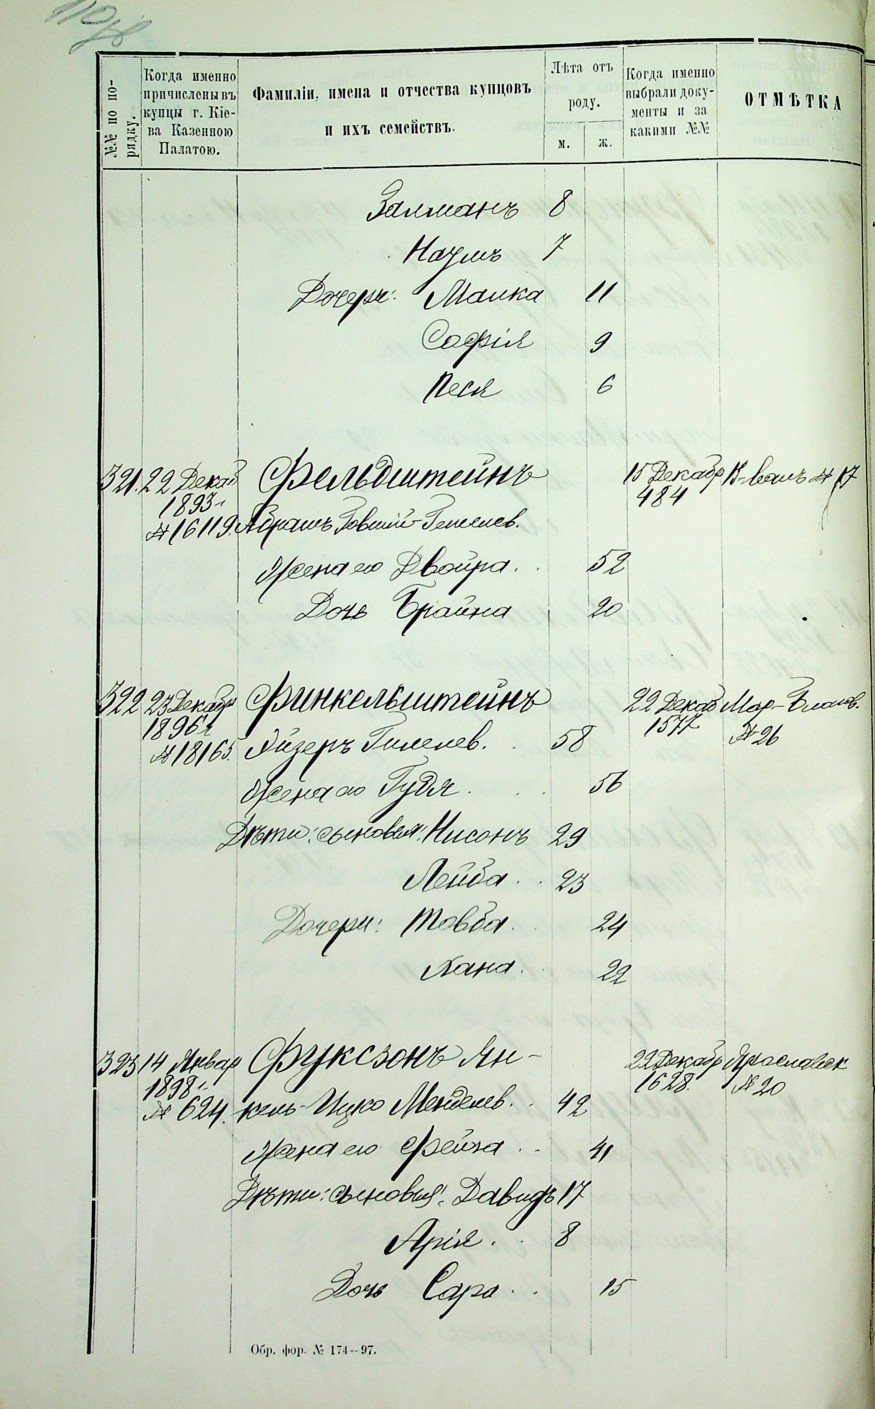 №№ по по-
рядку.
Когда именно
причислены въ
купцы г. Кіе-
ва Казенною
Палатою.
Фамиліи, имена и отчества купцовъ
и ихъ семействъ.
Лѣта отъ
роду.
м.
ж.
Когда именно
выбрали доку-
менты и за
какими №№
ОТМѢТКА
Залманъ 8
Наумъ 7
Дочери: Малка 11
Софія 9
Песя 6
321. 22 Декаб Фельдштейнъ 15 Декабр В-Вал. № 17
1893 г. 484
№ 16119. Абрамъ Говшій-Гешелев.
Жена его Двойра 52
Дочь Брайна 20
322 23 Декабр Финкельштейнъ 22 Декаб Мар-Благов.
1896 г. 1577 № 26
№ 18165. Айзеръ Гилелев. 58
Жена его Гудя 56
Дѣти: сыновья: Нисонъ 29
Лейба 23
Дочери: Товба 24
Хана 22
323 14 Январ Фуксзонъ Ян- 22 Декабр Ярославск
1898 г. 1628. № 20
№ 624. кель-Ицко Менделев. 42
Жена его Фейга 41
Дѣти: сыновья: Давидъ 17
Арія 8
Дочь Сара 15
Обр. фор. № 174—97.